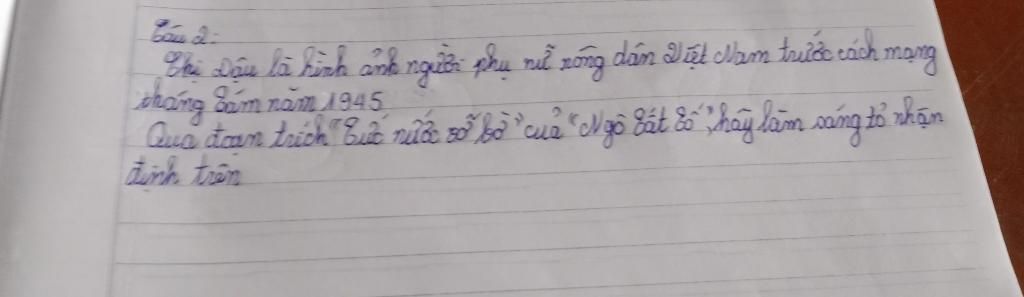 Câu 2:
Chị Dậu là hình ảnh người phụ nữ nông dân Việt Nam trước cách mạng
tháng Tám năm 1945
Qua đoạn trích "Tức nước vỡ bờ" của "Ngô Tất Tố", hãy làm sáng tỏ nhận
định trên